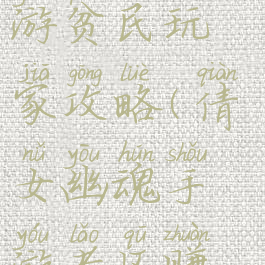 游贫民玩
jiā gōng lüè qiàn
家攻略(倩
nǚ yōu hún shǒu
女幽魂手
yóu lǎo qū zhuàn
游老区赚